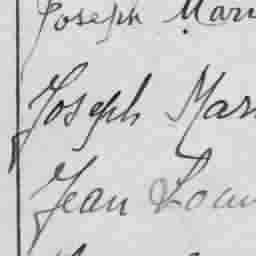 Joseph Mari
Joseph Mar
Jean Loui